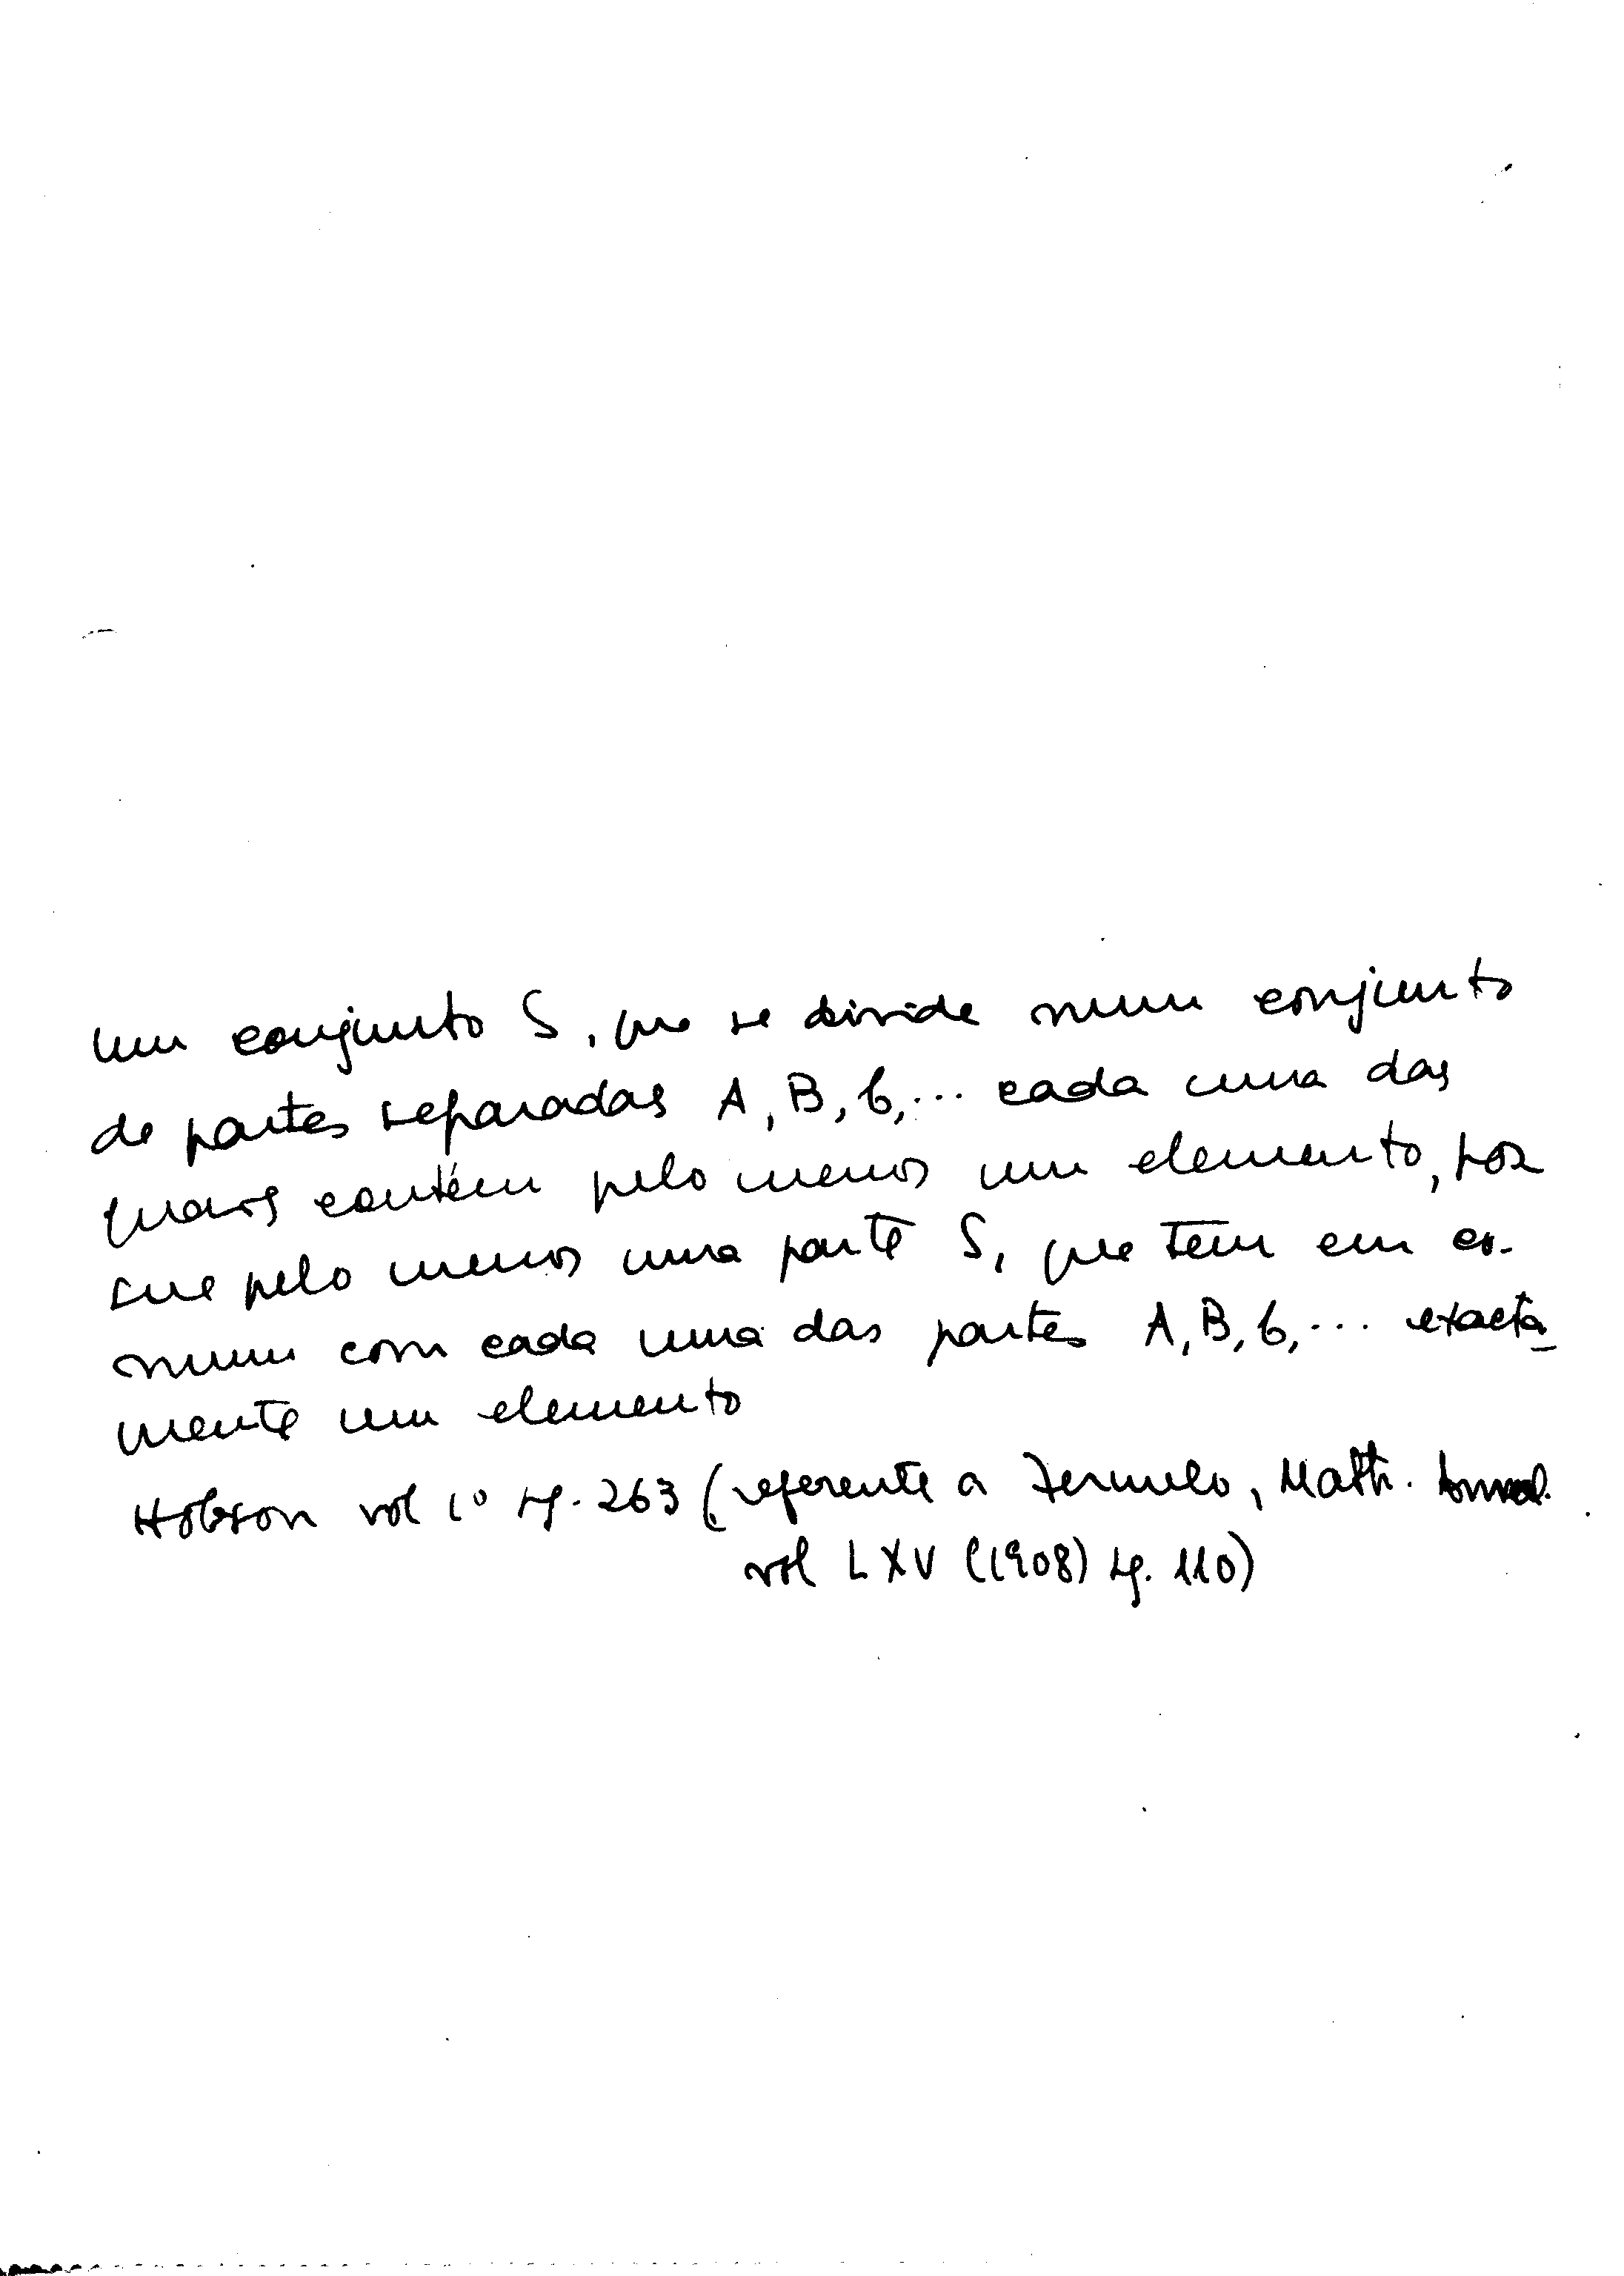 Um conjunto S, que se divide num conjunto
de partes separadas A, B, C, ... cada uma das
quais contém pelo menos um elemento, pos
sue pelo menos uma parte S, que tem em co-
mum com cada uma das partes A, B, C, ... exacta
mente um elemento
Hobson vol 1º pg. 263 (referente a Zermelo, Math. Annal.
vol LXV (1908) pg. 110)